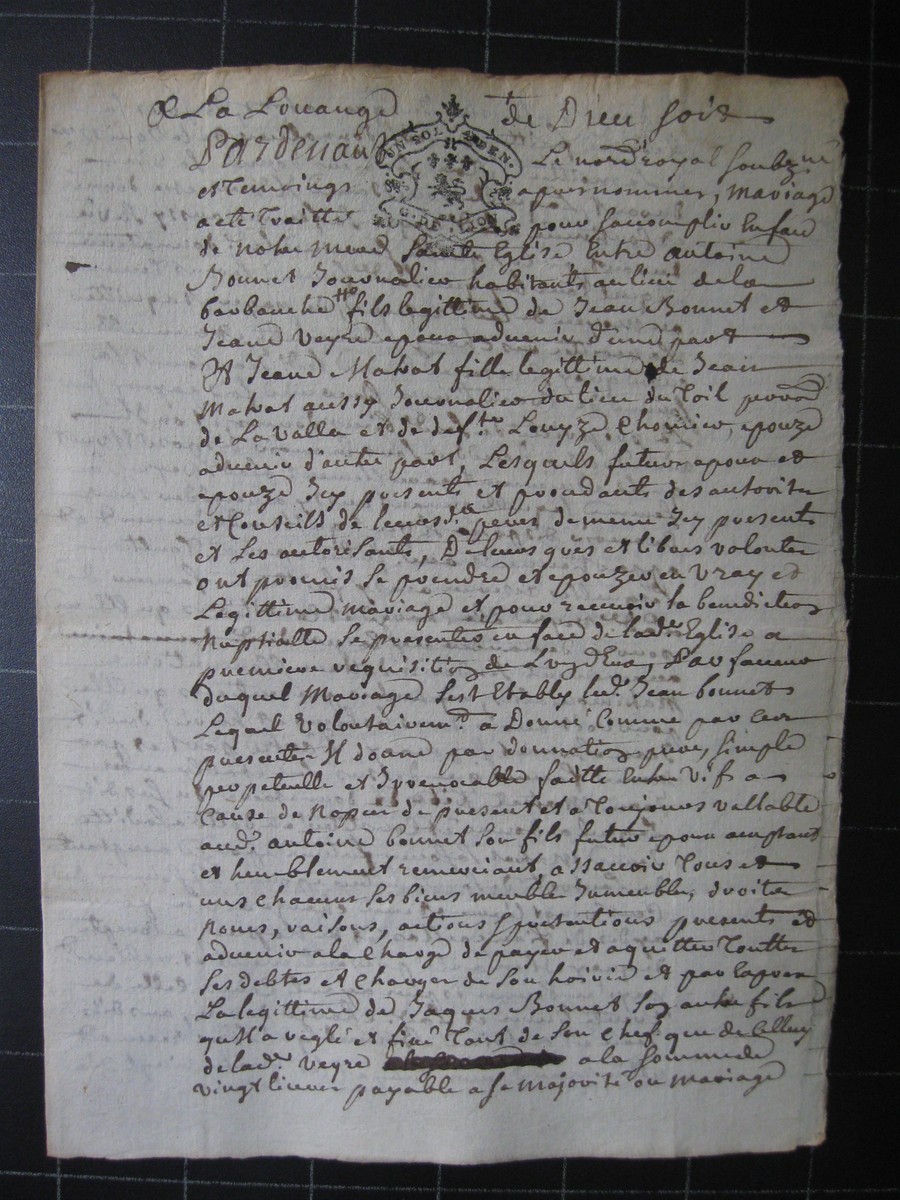 A La Louange de Dieu soit
Pardevant Le nore royal soubzne
UN SOL 4 DEN.
G. DE LYON
et Temoings apres nommes, mariage
a ete Traitte pour saccomplir En face
de notre mere Sainte Eglise Entre antoine
Bonnet Journalier habitants au lieu de la
barbanche fils legittime de Jean Bonnet et
Jeane Veyre epoux advenir d'une part
Et Jeane Mahat fille legittime de Jean
Mahat aussy Journalier du lieu du Toil
de Lavalla et de deft. Louyze Chorier, epouze
advenir d'autre part, Lesquels futurs epoux et
epouze Icy presents et prendants des autorites
et Conseils de leurs ds peres de meme Icy presents
et Les autorisants, De leurs grés et libres volontes
ont promis se prendre et epouzer en vray et
Legittime mariage et pour recevoir la benediction
Nuptialle se presenter en face de lade. Eglise a
premiere requisition de L'un d'Eux, En faveur
duquel Mariage Sest Etably led. Jean bonnet
Lequel Volontairemt. a Donné Comme par Ces
presentes Il donne par donnation pure, simple
perpetuelle et Irrevocable faitte Entre Vifs a
Cause de Nopces de present et a Toujours vallable
aud. antoine bonnet son fils futur epoux acceptant
et humblement remerciant, a scavoir Tous et
uns chacuns ses biens meuble Immeuble, droits
Noms, raisons, actions pretentions presents et
advenir a la Charge de payer et aquitter Touttes
ses debtes et Charges de son hoirie et par Expres
La legittime de Jaques Bonnet son autre fils
quil a reglé et fixé Tant de son Chef que de Celluy
de lade. Veyre a la somme de
vingt livres payable a sa majorité ou mariage